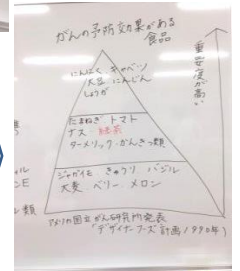 がんの予防効果がある
食品
重要度が高い
にんにく キャベツ
大豆 にんじん
しょうが
たまねぎ トマト
ナス 緑茶
ターメリック・かんきつ類
ジャガイモ きゅうり バジル
大麦 ベリー メロン
アメリカ国立がん研究所発表
「デザイナーフーズ計画1990年」